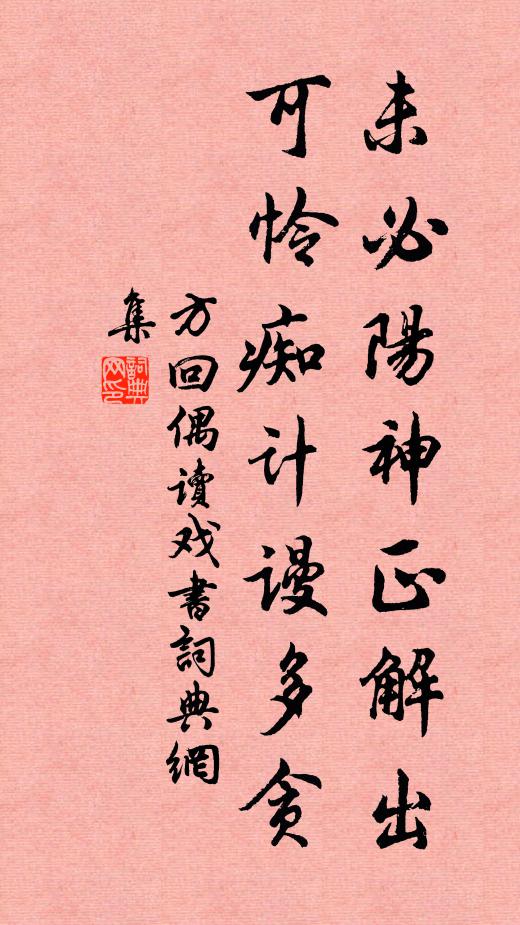 未必陽神正解出
可怜痴计謾多貪
方回偶读戏書詞典網
集
詞典网印